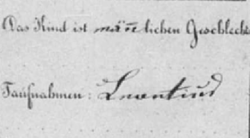 Das Kind ist män̅lichen Geschlecht
Taufnahmen: Leontius